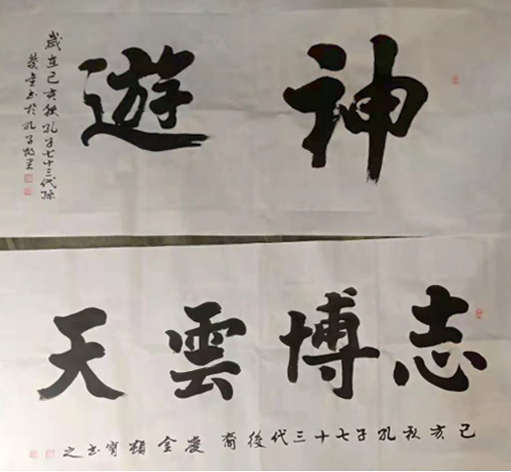 神遊
歲在己亥秋孔子七十三代孫
慶金书於孔子故里
志博雲天
己亥秋孔子七十三代後裔慶金书之